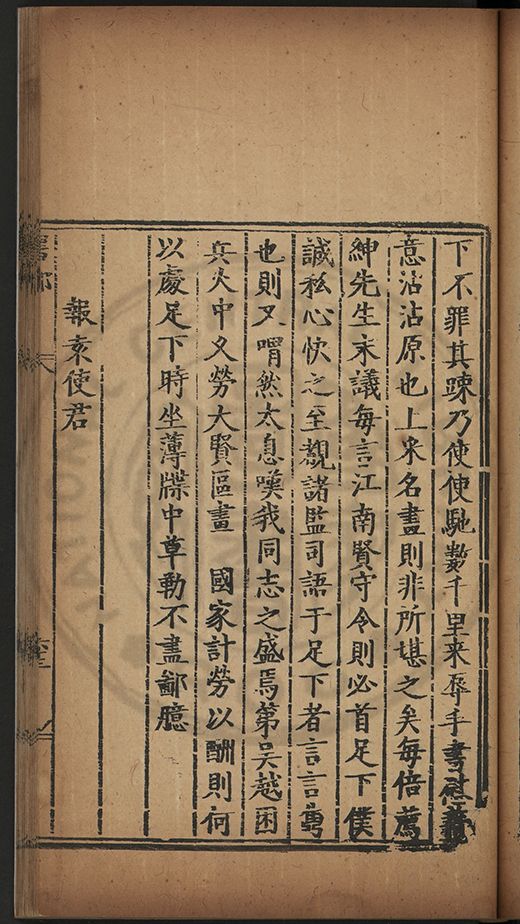 下不罪其踈乃使使馳數千里来辱手書慰
意沾沾原也上米名畫則非所堪之矣每倍薦
紳先生末議每言江南賢守令則必首足下僕
誠私心快之至覩諸監司語于足下者言言
也則又喟然太息嘆我同志之盛焉第吳越困
兵火中又勞大賢區畫　國家計勞以酬則何
以處足下時坐薄牒中草動不盡鄙臆
報袁使君